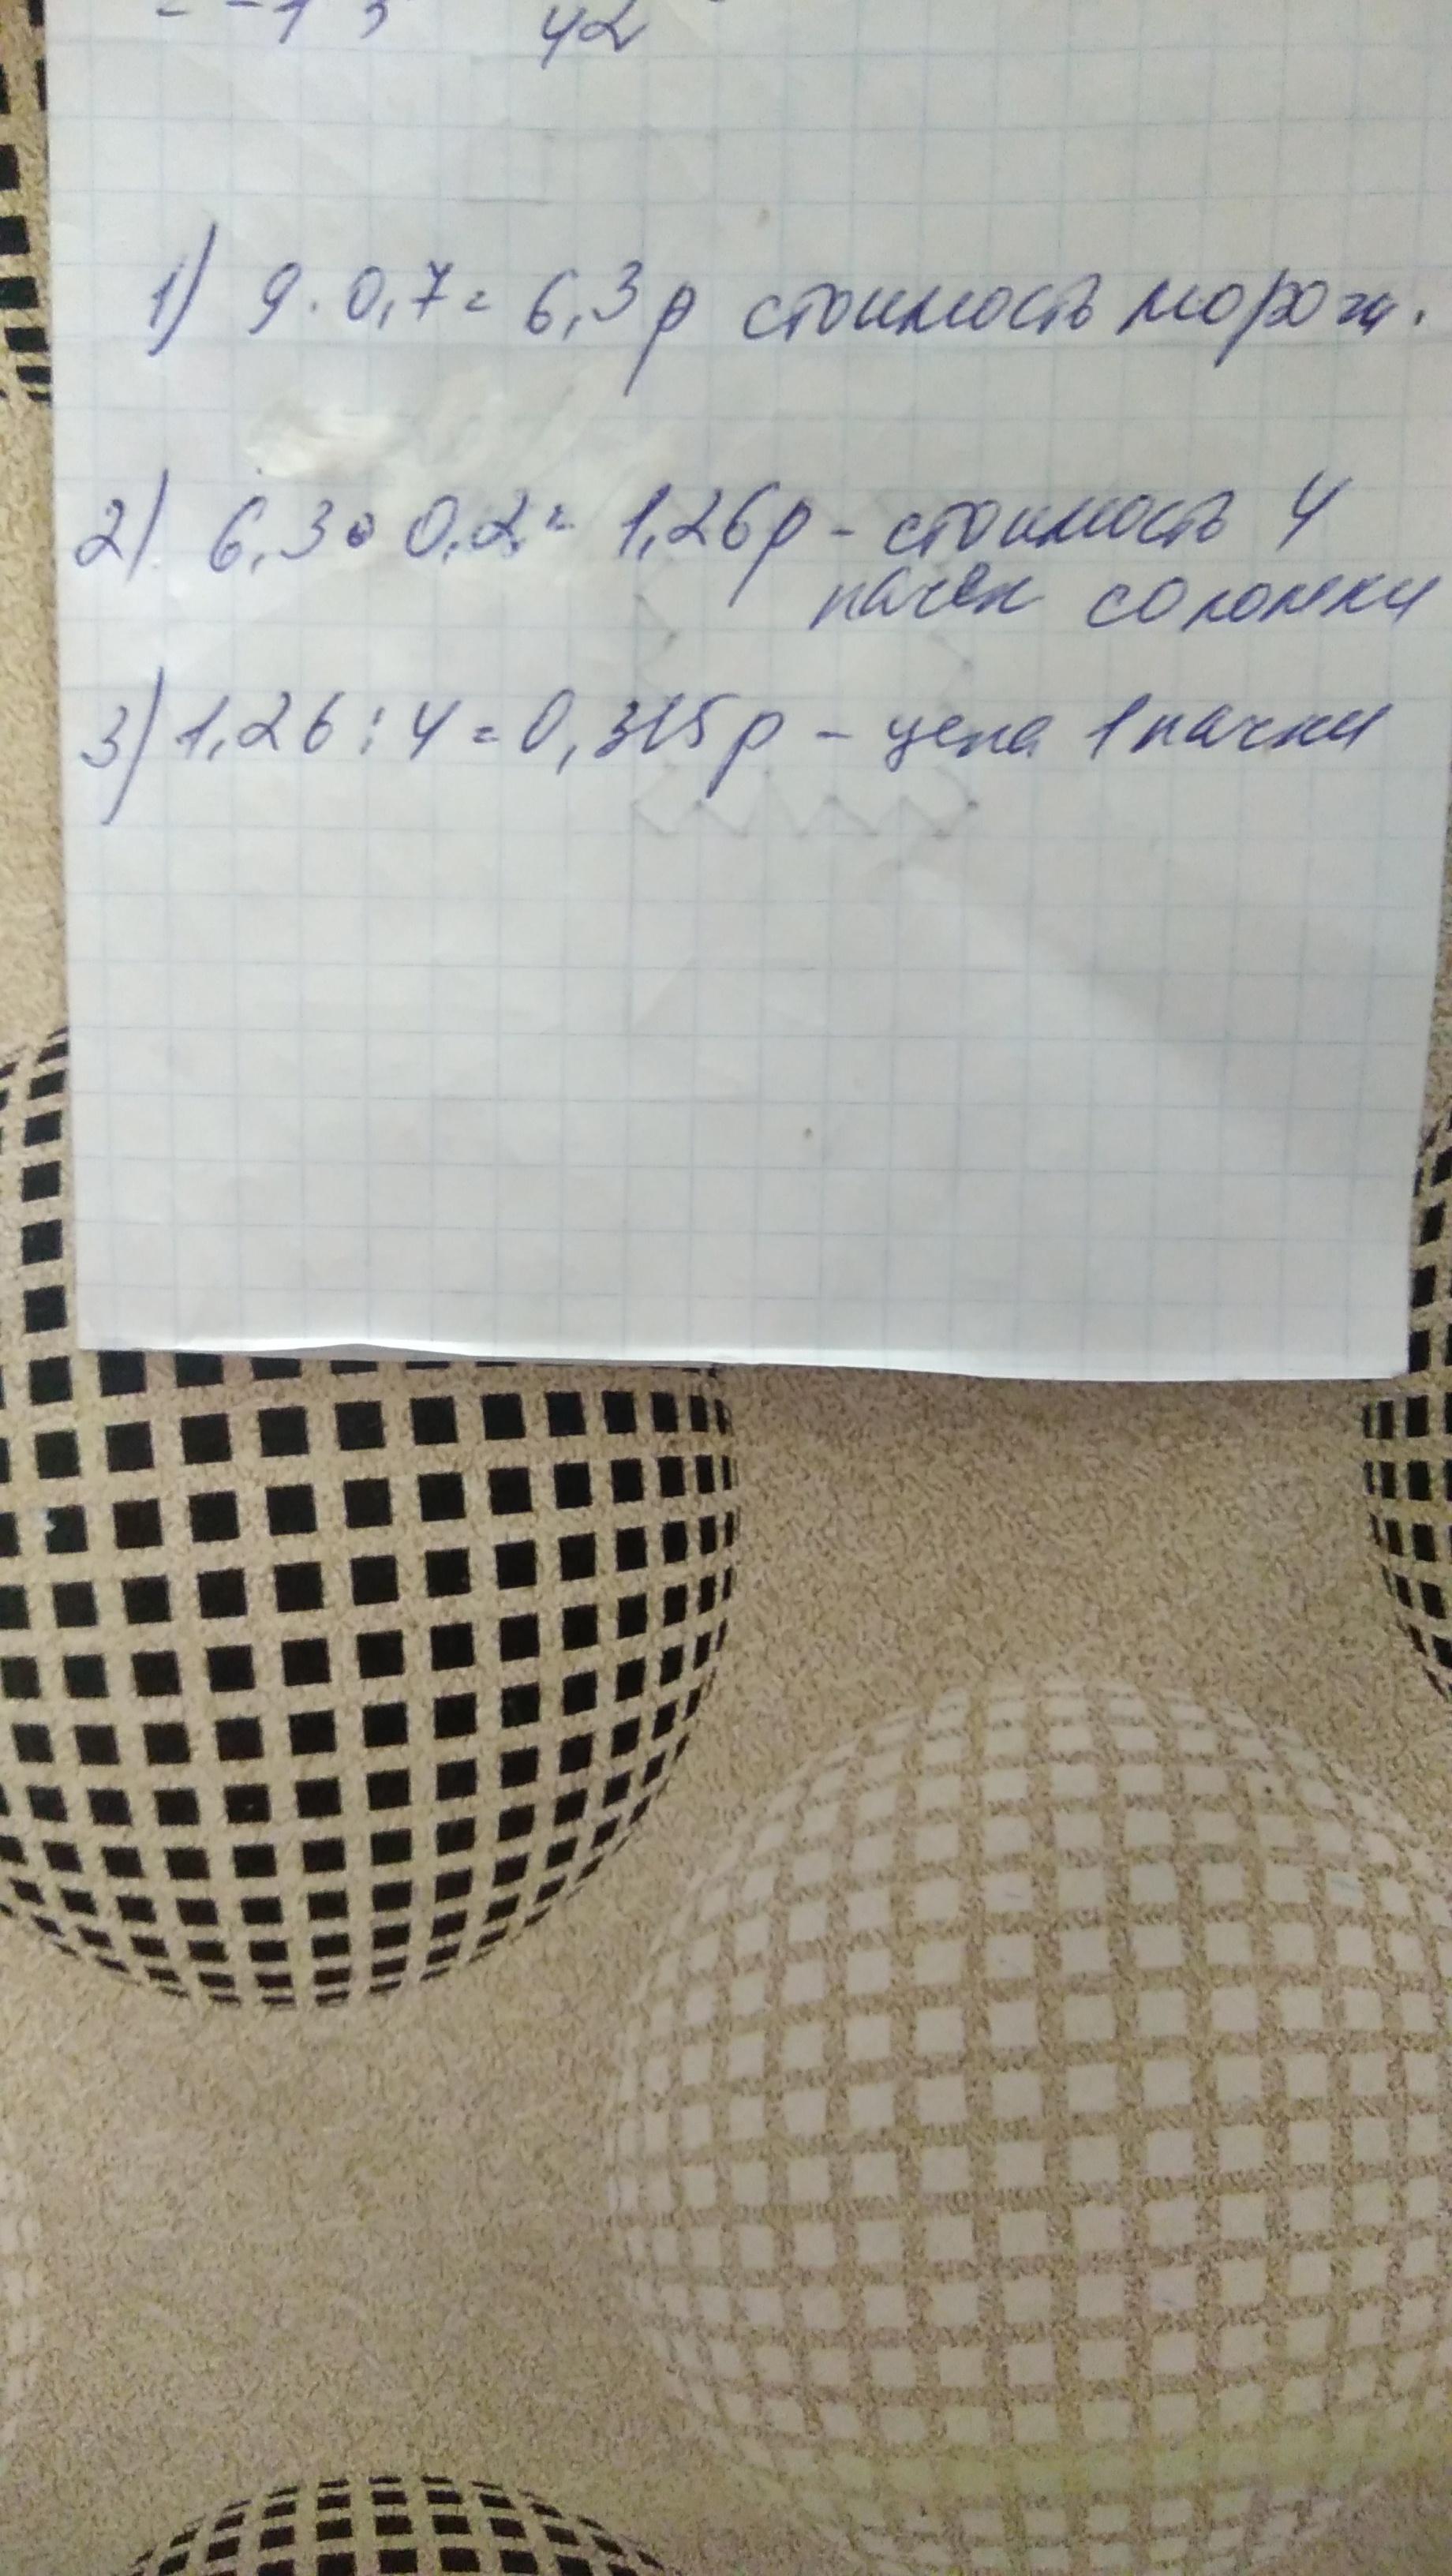 42
1) 9 · 0,7 = 6,3 р стоимость морож.
2) 6,3 · 0,2 = 1,26 р - стоимость 4
пачек соломки
3) 1,26 : 4 = 0,315 р - цена 1 пачки